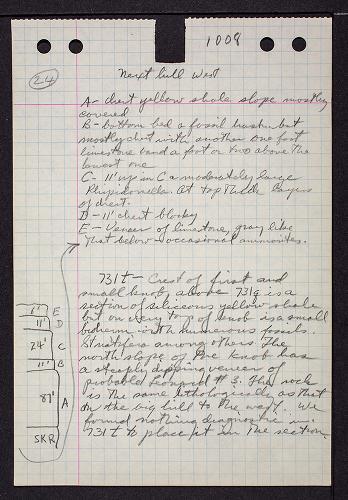 1009
24
Next hill West
A- chert yellow shale slope mostly
covered
B- bottom bed a fossil hash but
mostly chert with another one foot
limestone band a foot or two above the
lowest one
C- 11' up in C a moderately large
Rhipidomella. At top thick layers
of chert.
D- 11' chert blocky
E- Veneer of limestone, gray like
that below - occasional ammonites.
731t- Crest of first and
small knob above 731g is a
section of siliceous yellow shale
but on very top of knob is a small
bioherm with numerous fossils.
among others. The
north slope of the knob has
a steeply dipping veneer of
probable Leonard # 3. The rock
is the same lithologically as that
on the big hill to the west. We
found nothing diagnostic in
731t to place it in the section.
6' E
11' D
24' C
11' B
87' A
SKR